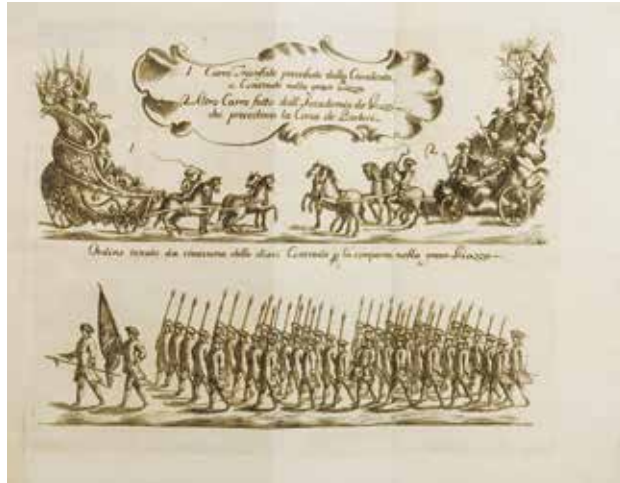 1 Carro Trionfale preceduto dalla Cavalcata
e Contrade nella gran Piazza
2. Altro Carro fatto dall'Accademia de Rozzi
che precedeva la Corsa de Barberi.
1
2
Ordine tenuto da ciascuna delle dieci Contrade p la comparsa nella gran Piazza